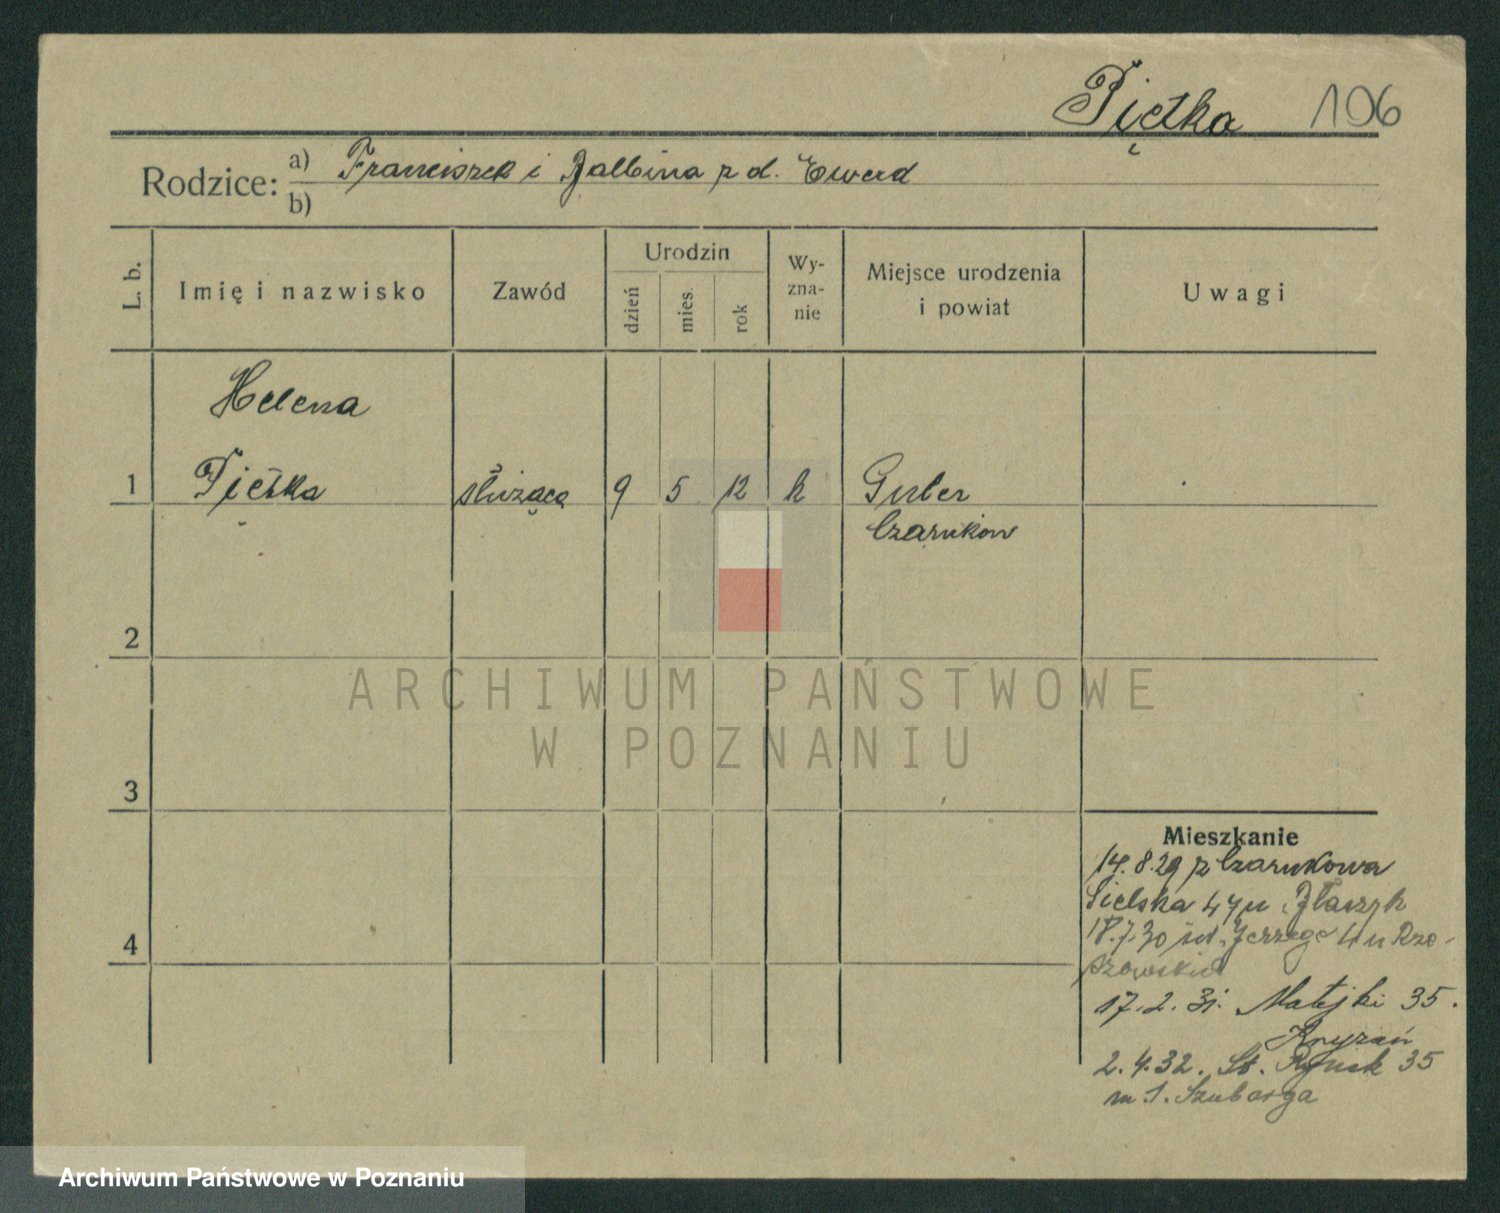 Piętka 106
Rodzice: a) Franciszek i Balbina z d. Ewerd
b)
L. b. Imię i nazwisko Zawód Urodzin dzień mies. rok Wyznanie Miejsce urodzenia i powiat Uwagi
Helena
1 Piętka służąca 9 5 12 k Guber
Czarnków
2
ARCHIWUM PAŃSTWOWE
W POZNANIU
3
Mieszkanie
14.8.29 z Czarnkowa
Sielska 47 u Błaszyk
4
18.7.30 św. Jerzego 4 u Rze-
szowskich
17.2.31. Matejki 35.
2.4.32. St. Rynek 35
m 1. Szubarga
Archiwum Państwowe w Poznaniu